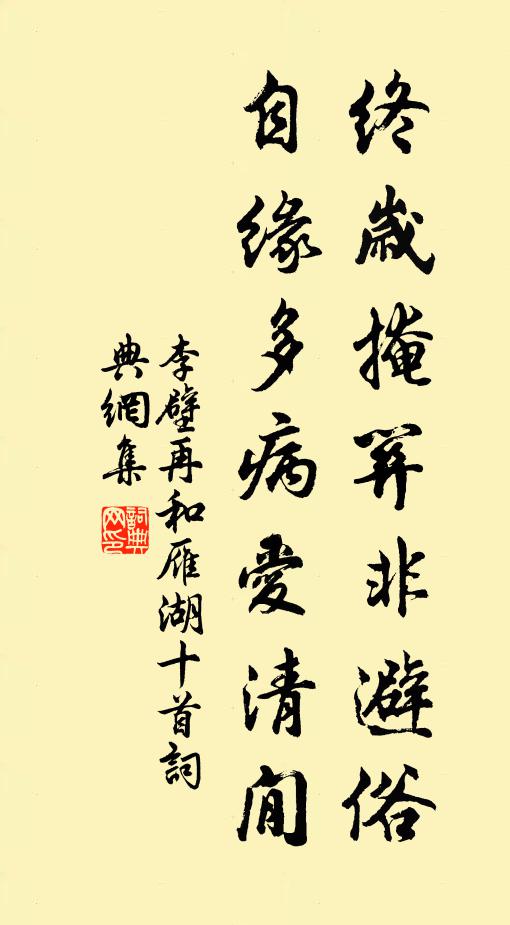 終歲掩關非避俗
自緣多病愛清閒
李壁再和雁湖十首詞
典網集
詞典網印